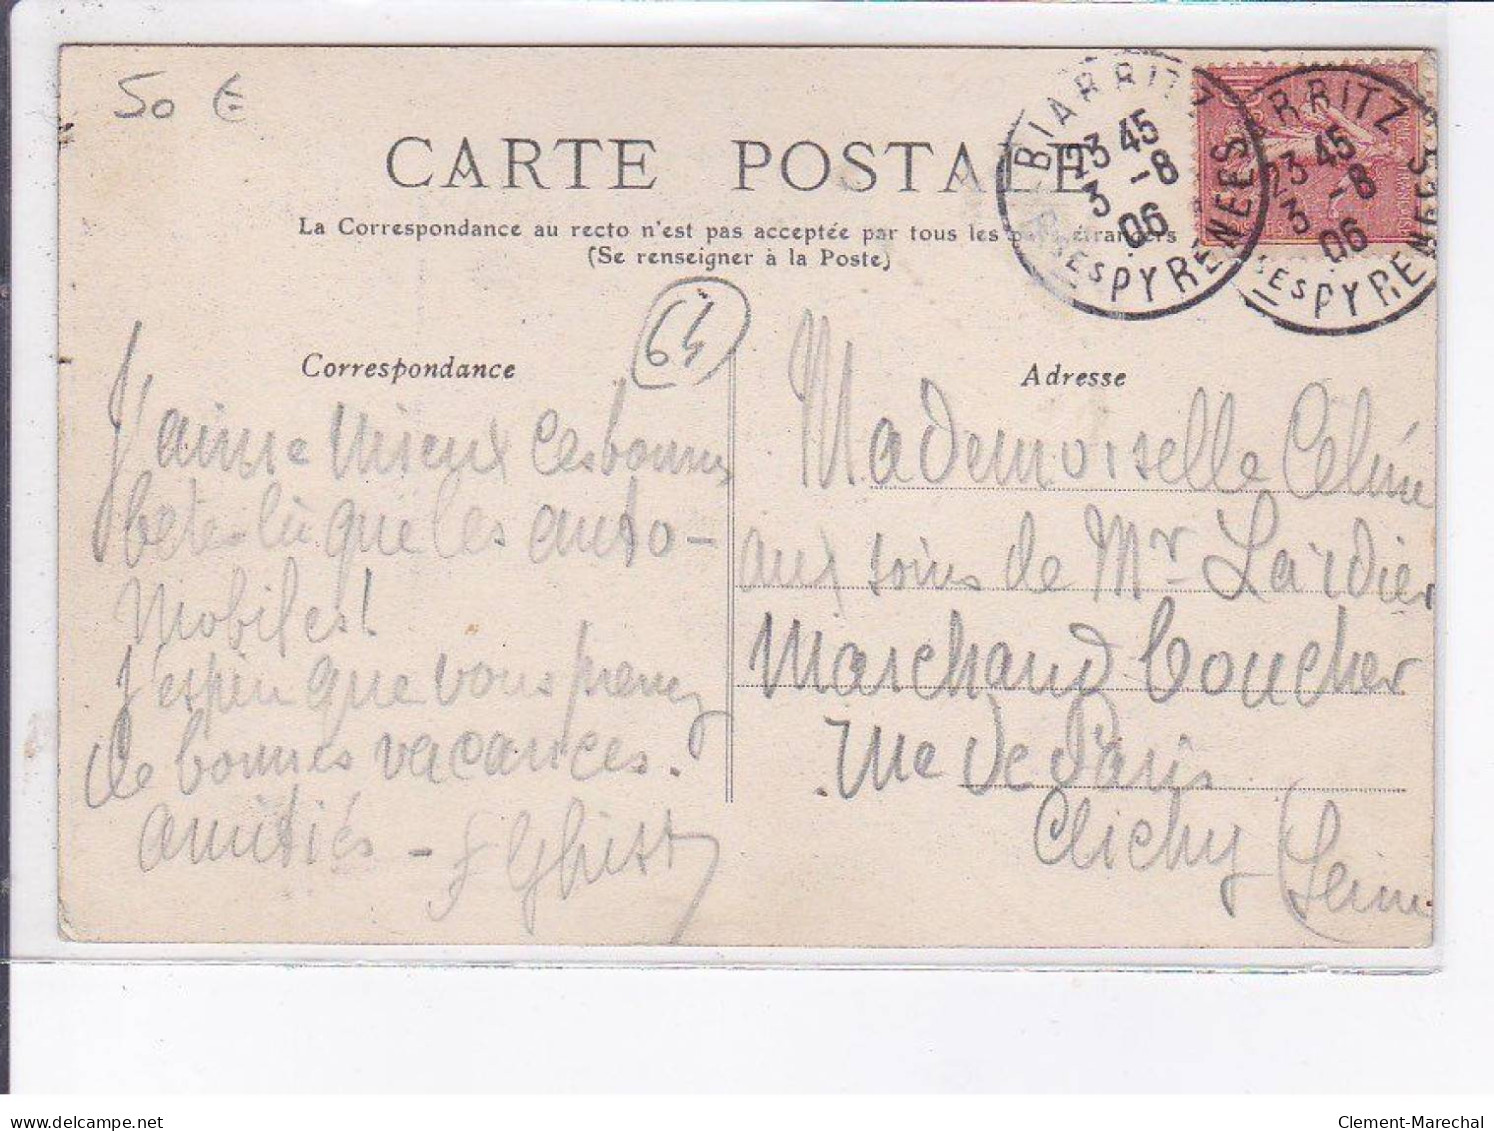 50 €
CARTE POSTALE
La Correspondance au recto n'est pas acceptée par tous les pays étrangers
(Se renseigner à la Poste)
BIARRITZ
23 45
3 -8
06
BSES PYRENEES
BIARRITZ
23 45
3 -8
06
BSES PYRENEES
64
Correspondance
J'aime mieux ces bonnes
betes là que les auto-
mobiles!
J'espère que vous prenez
de bonnes vacances.
Amitiés -
Adresse
Mademoiselle Céline
aux soins de Mr Laidier
Marchand boucher
rue de Paris
Clichy (Seine
www.delcampe.net
Clement-Marechal